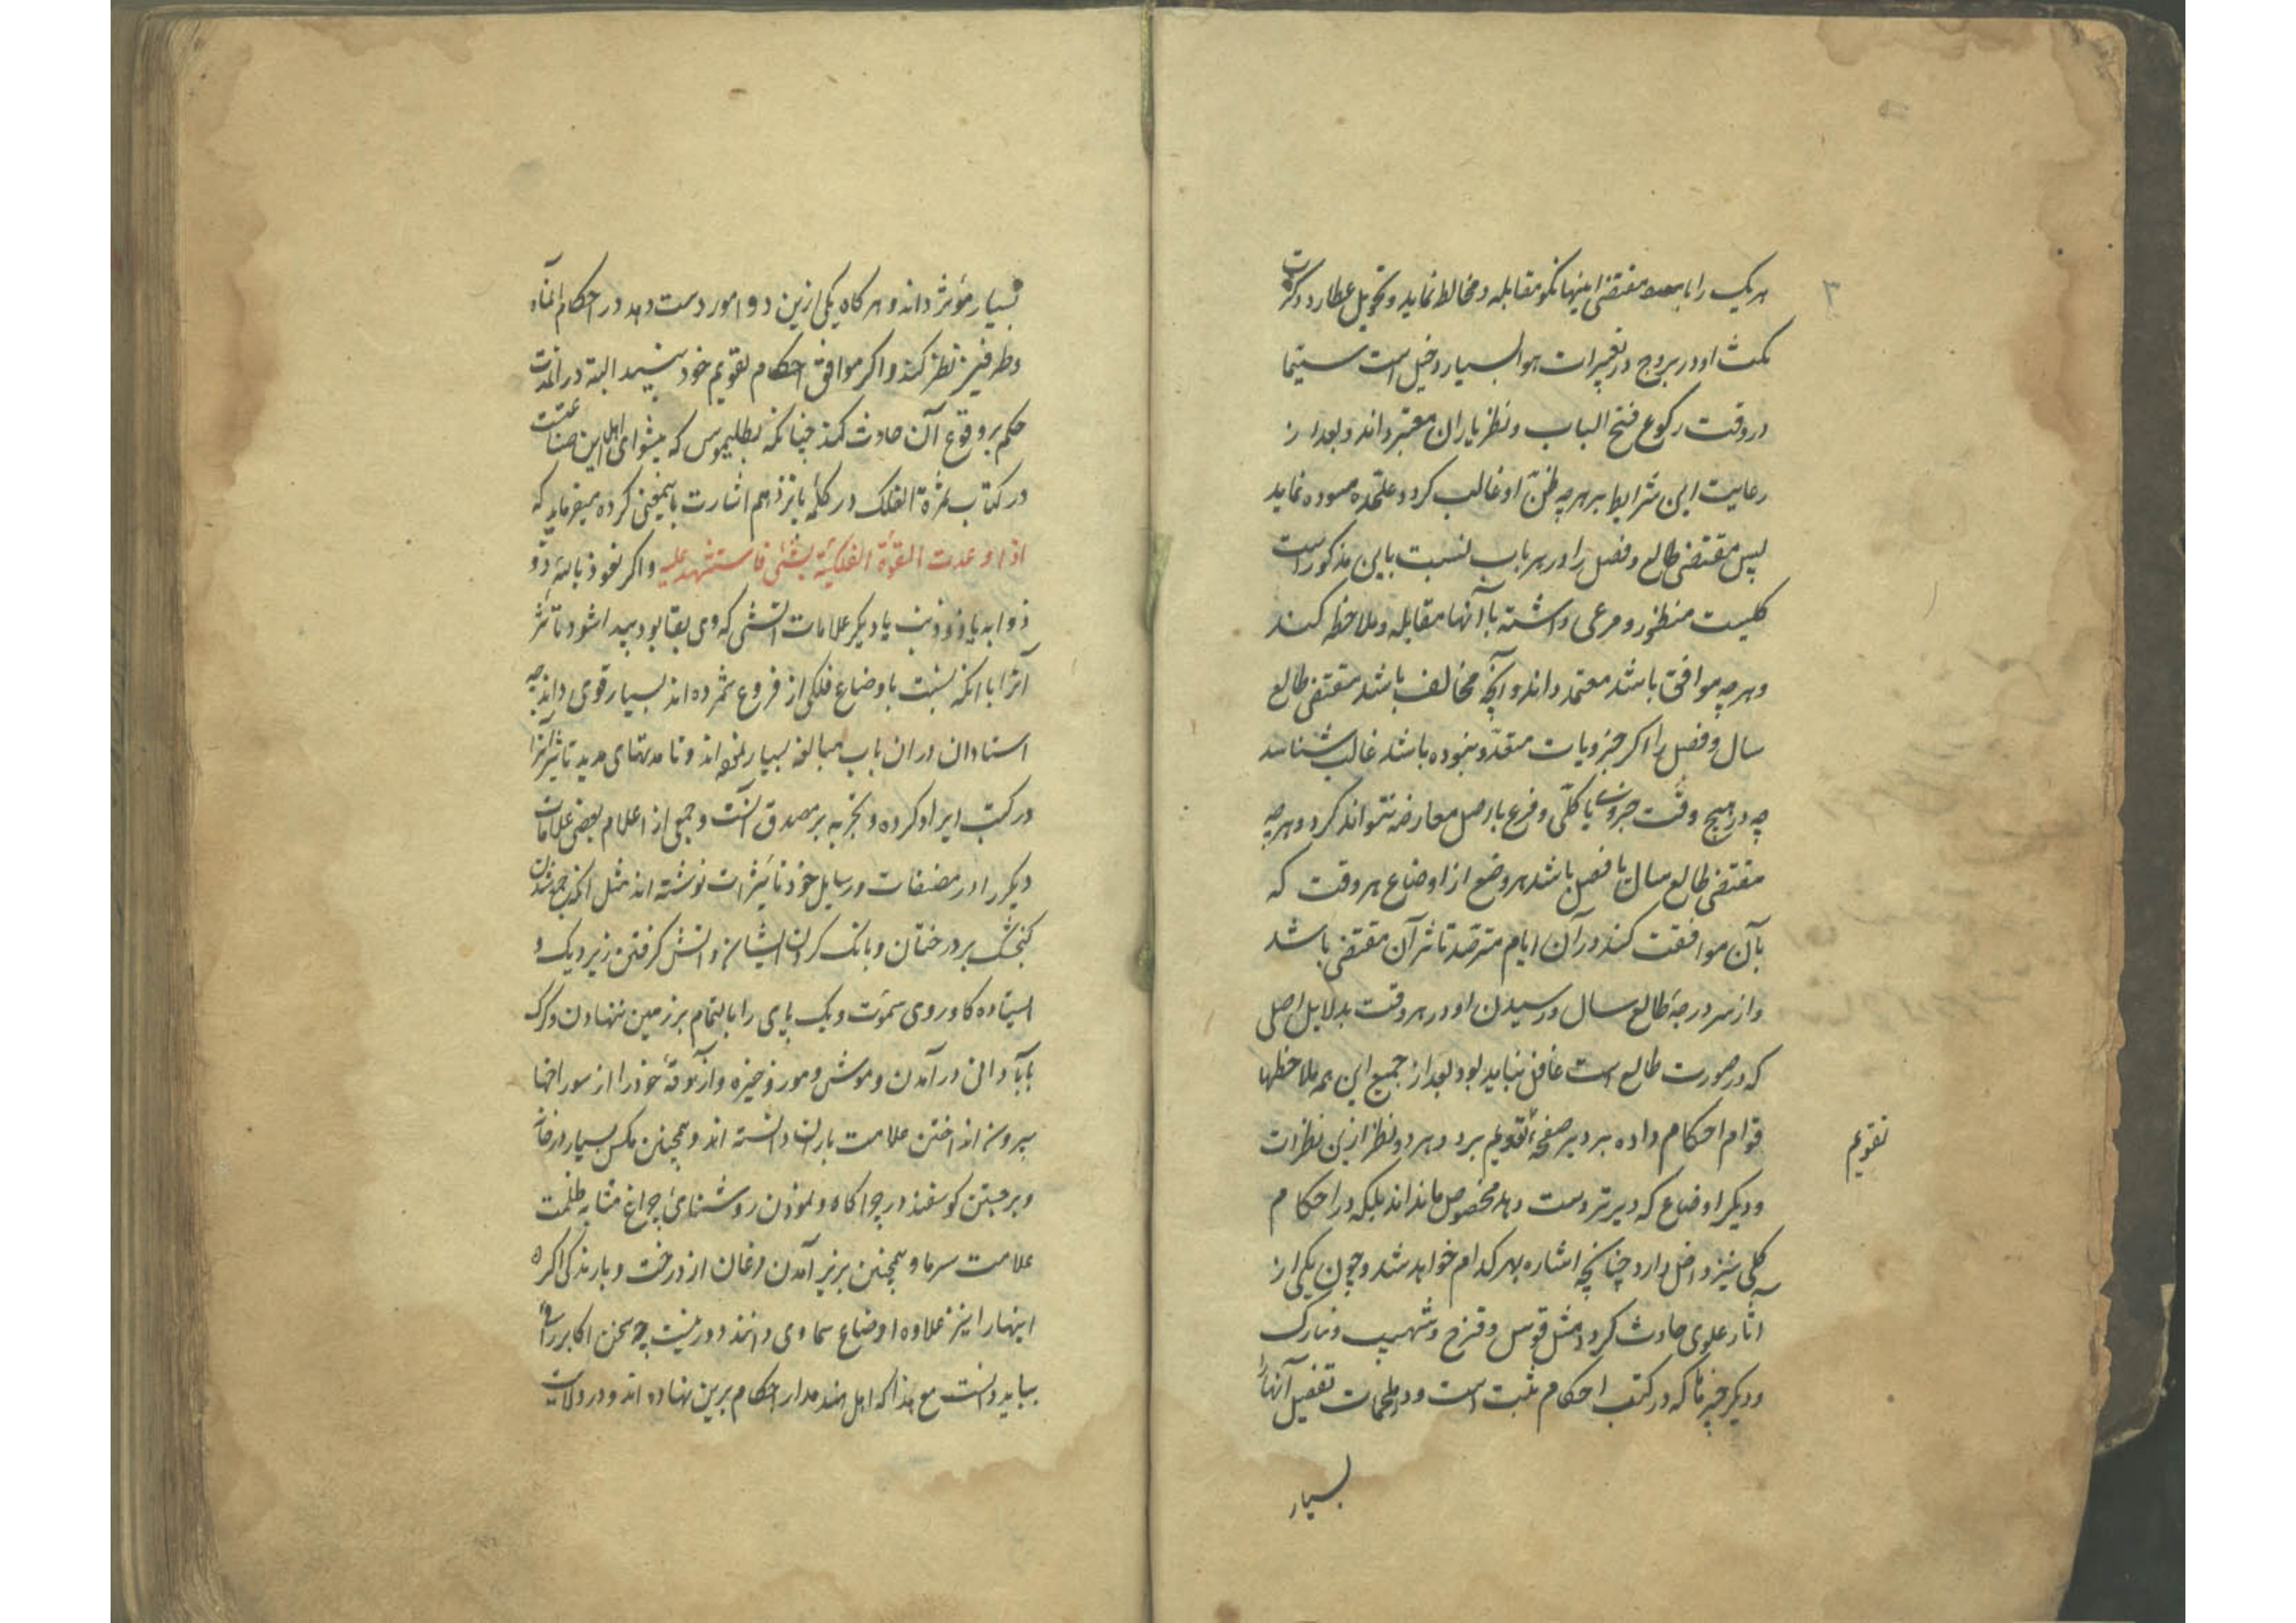 ۳
هر یک را با مقتضی اینها نیکو مقابله و مخالط نماید و تحویل عطارد و کثرت
مکث او در بروج در تغییرات هوا بسیار دخیل است سیّما
در وقت رکوع فتح الباب و نظر یاران معتبر داند و بعد از
رعایت این شرایط بر هرچه ظنّ او غالب کردد علیحده مسوده نماید
پس مقتضی طالع و فصل را در هر باب نسبت باین مذکور است
کلیست منظور و مرعی داشته با آنها مقابله و ملاحظه کند
و هرچه موافق باشد معتمد داند و آنچه مخالف باشد مقتضی طالع
سال و فصل را اکر جزویات متعدّد نبوده باشد غالب شناسد
چه در هیچ وقت جزوی با کلّی و فرع با اصل معارضه نتواند کرد و هرچه
مقتضی طالع سال یا فصل باشد هر وضع از اوضاع هر وقت که
بآن موافقت کند در آن ایام مترصّد تاثیر آن مقتضی باشد
و از سر درجهٔ طالع سال و رسیدن او در هر وقت بدلایل اصلی
که در صورت طالع است غافل نباید بود بعد از جمیع این همه ملاحظها
قوام احکام داده بر صفحهٔ تقویم برد و هر دو نظر ازین نظرات
تقویم
و دیکر اوضاع که دیرتر دست دهد مخصوص ماند بلکه در احکام
کلی نیز داخل دارد چنانچه اشاره بهر کدام خواهد شد و چون یکی از
آثار علوی حادث کردد مثل قوس و قزح و شهب و نیازک
و دیکر چیزها که در کتب احکام مثبت است و در ملحمات تفصیل آنها را
بسیار
بسیار مؤثر داند و هر کاه یکی ازین دو امور دست دهد در احکام آنماه
و طرفین نظر کند و اکر موافق احکام تقویم خود بیند البته در آنمدت
حکم بر وقوع آن حادث کند چنانکه بطلیموس که پیشوای اهل این صناعتست
در کتاب ثمرة الفلک در کلمهٔ پانزدهم اشارت باینمعنی کرده میفرماید که
اذا وعدت القوة الفلکیّة بشئ فاستشهد علیه و اکر نعوذ بالله ذو
ذوابه یا ذو ذنب یا دیکر علامات آتشی که وی بقا بود پیدا شود تاثیر
آنرا با آنکه نسبت باوضاع فلکی از فروع شمرده اند بسیار قوی داند چه
استادان در ان باب مبالغه بسیار نموده اند و تا مدتهای مدید تاثیر آنرا
در کتب ایراد کرده و تجربه بر مصدق آنست و جمعی از اعلام بعضی علامات
دیکر را در مصنفات و رسایل خود تاثیرات نوشته اند مثل آنکه جمع شدن
کنجشک بر درختان و بانک کردن ایشان و آتش کرفتن زیر دیک و
ایستاده کاو روی سموت و یک پای را بالتمام بر زمین ننهادن و کرک
بآبادانی در آمدن و موش و مور ذخیره و آزوقهٔ خود را از سوراخها
بیرون انداختن علامت باران دانسته اند و همچنین مکس بسیار در خانه
و برجستن کوسفند در چراکاه و نمودن روشنائی چراغ مشابه ظلمت
علامت سرما و همچنین بزیر آمدن مرغان از درخت و بارندکی اکر
اینها را نیز علاوه اوضاع سماوی دانند دور نیست چه سخن اکابر را
بباید دانست مع هذا که اهل هند مدار احکام برین نهاده اند و در ولایت